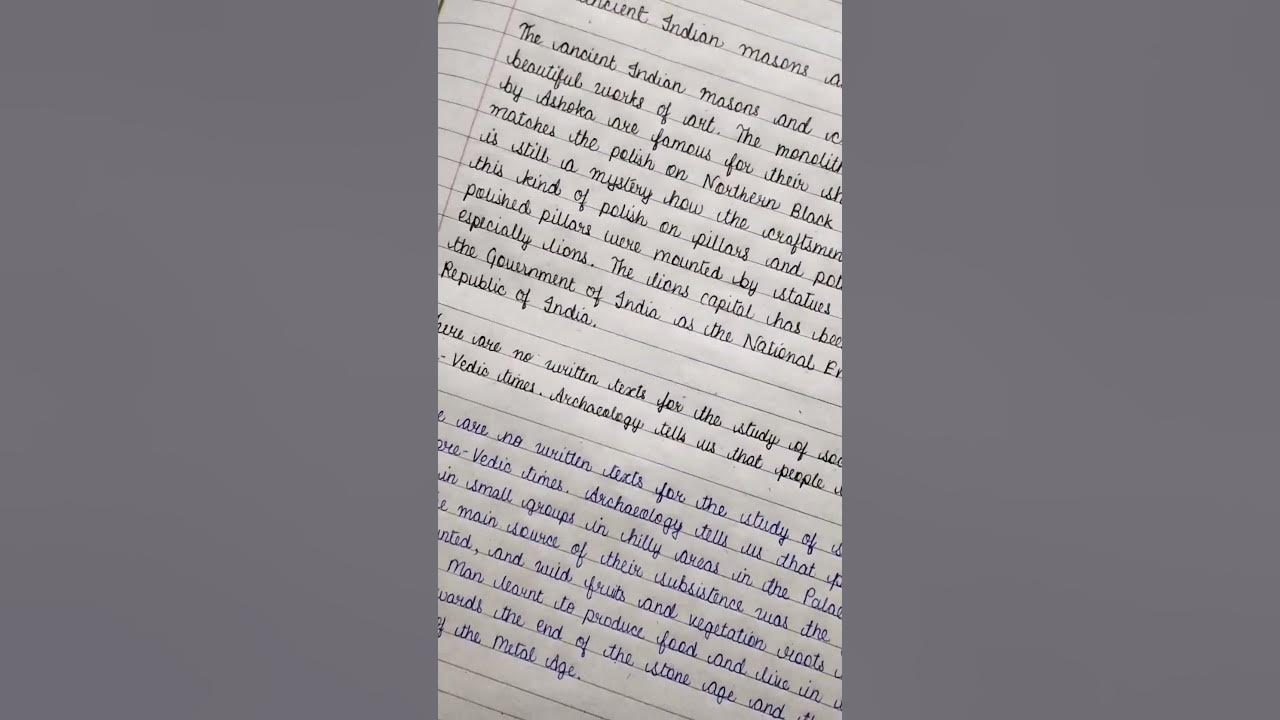 ancient Indian masons
The ancient Indian masons and
beautiful works of art. The monolith
by Ashoka are famous for their sh
matches the polish on Northern Black
is still a mystery how the craftsmen
this kind of polish on pillars and pol
polished pillars were mounted by statues
especially lions. The lions capital has bee
the Government of India as the National Em
Republic of India.
here are no written texts for the study of soc
- Vedic times. Archaeology tells us that people
e are no written texts for the study of s
pre-Vedic times. Archaeology tells us that p
in small groups in hilly areas in the Palae
e main source of their subsistence was the
unted, and wild fruits and vegetation roots
Man learnt to produce food and live in
wards the end of the stone age and th
of the Metal Age.